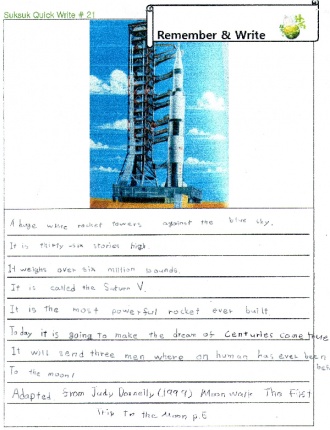 Suksuk Quick Write # 21
Remember & Write
A huge white rocket towers against the blue sky.
It is thirty-six stories high.
It weighs over six million pounds.
It is called the Saturn V.
It is the most powerful rocket ever built
Today it is going to make the dream of Centuries come true
It will send three men where on human has ever been
To the moon!
Adapted from Judy Donnelly (1989) Moonwalk The Fist
Trip To the Moon p.6